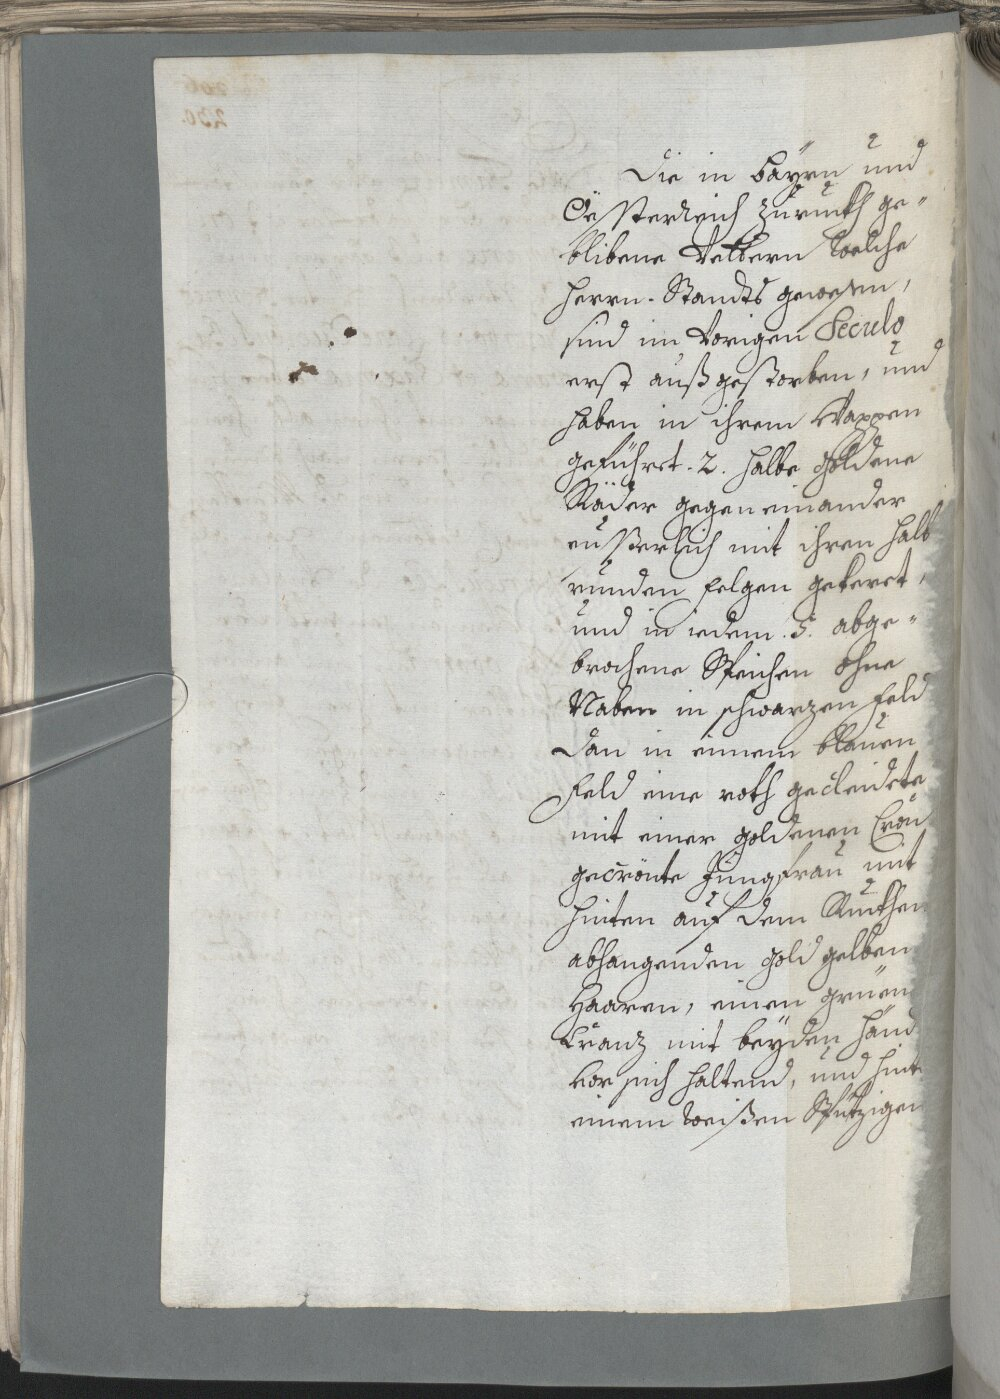 Die in Bayrn und
Össterreich zuruckh ge-
blibene Vettern welche
Herrn-Standts gewesen,
sind im vorigen Seculo
erst außgestorben, und
haben in ihrem Wappen
geführet. 2. halbe goldene
Räder gegen einander
eusserlich mit ihren halb
runden felgen gekeret,
und in iedem .5. abge-
brochene Speichen ohne
Naben in schwarzen feld
Dan in einnem blauen
Feld eine roth gecleidete
mit einer goldenen Cron
gecrönte Jungfrau mit
hinten auf dem Ruckhen
abhangenden gold gelben
Haaren, einen grüen
Cranz mit beyden händ
vor sich haltend, und hint
einem weißen Spitzigen